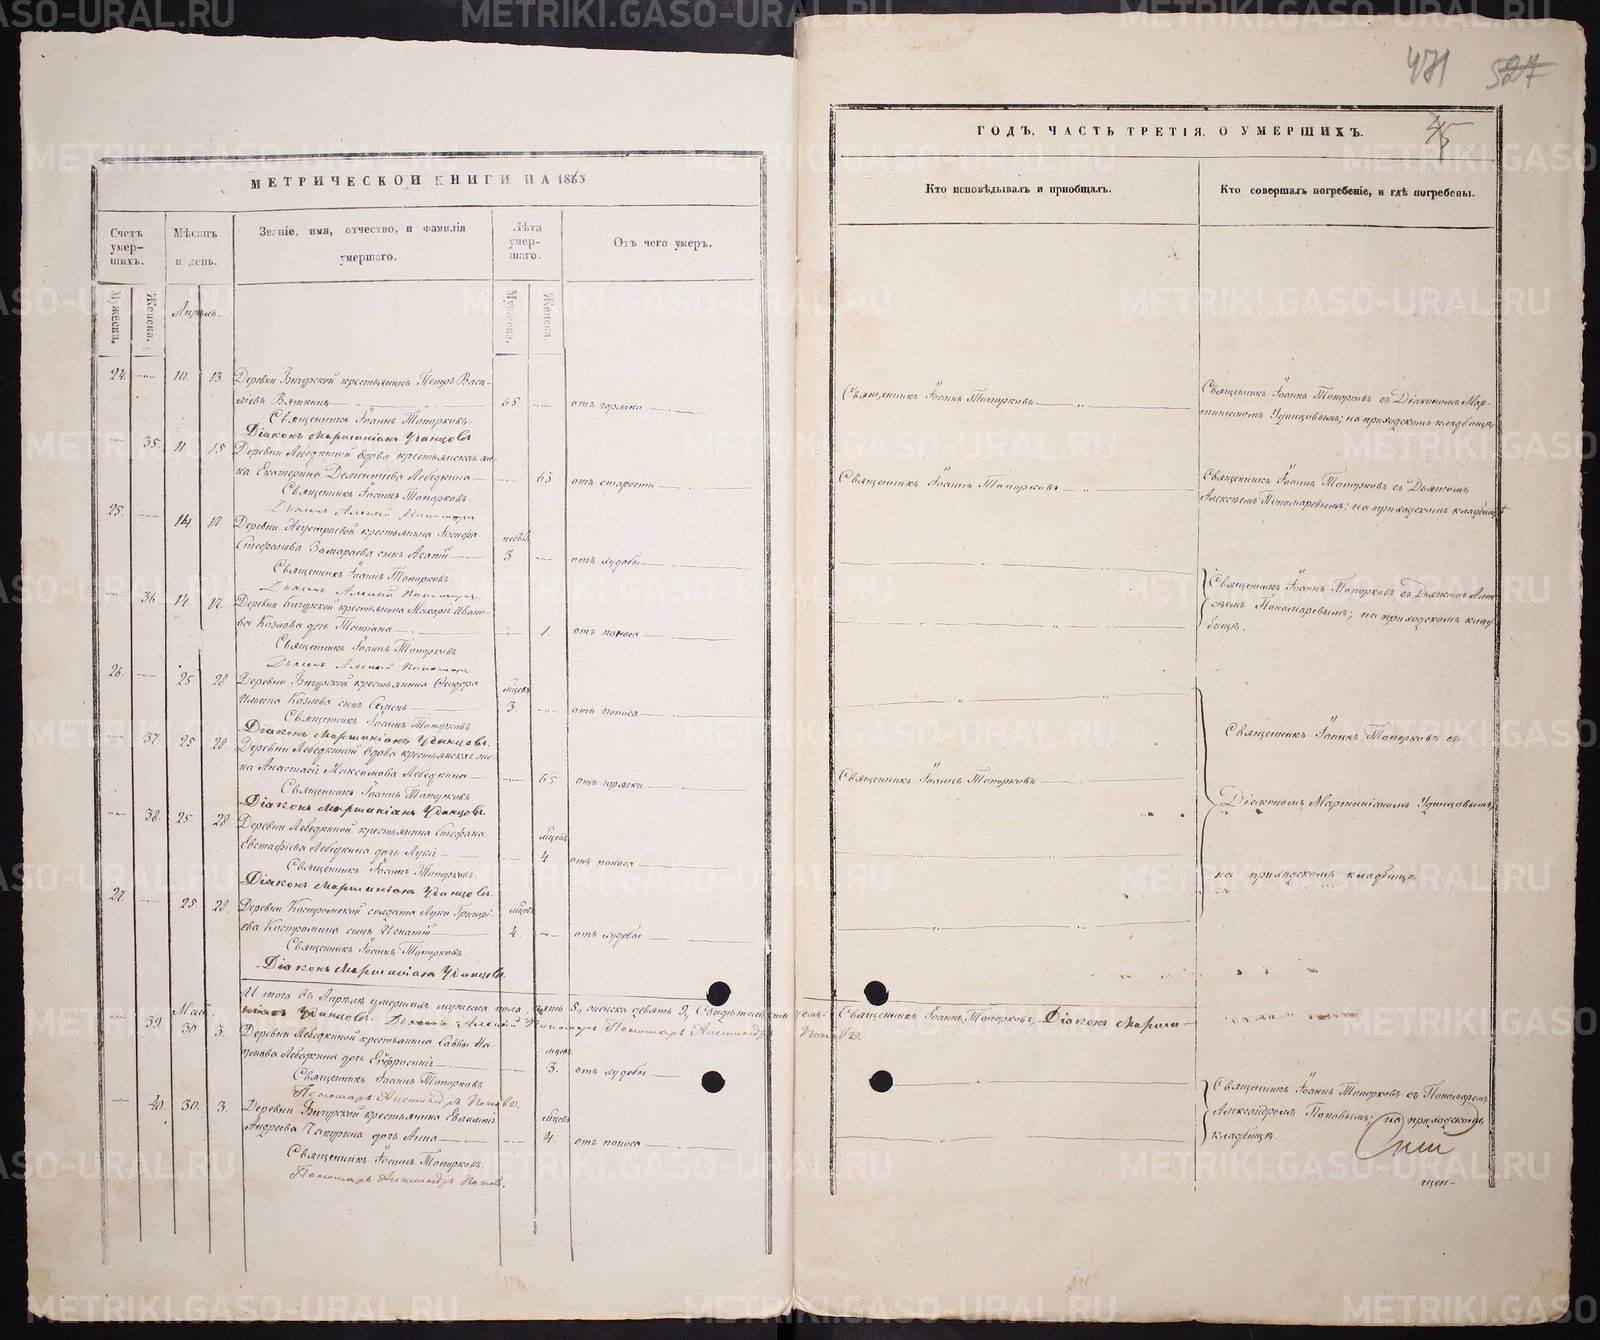 471 527
МЕТРИЧЕСКОЙ КНИГИ НА 1865
ГОДЪ, ЧАСТЬ ТРЕТІЯ, О УМЕРШИХЪ.
45
Счетъ умер-шихъ.
Мѣсяцъ и день.
Званіе, имя, отчество, и фамилія умершаго.
Лѣта умер-шаго.
Отъ чего умеръ.
Кто исповѣдывалъ и пріобщалъ.
Кто совершалъ погребеніе, и гдѣ погребены.
Мужеска.
Женска.
Мужеска.
Женска.
Апрѣль.
24. 10. 13. Деревни Бигурской крестьянинъ Петръ Васи-
льевъ Вяткинъ 65 отъ горячки
Священникъ Іоаннъ Топорковъ
Священникъ Іоаннъ Топорковъ съ Діакономъ Мар-
тиніаномъ Удинцовымъ; на приходскомъ кладбищѣ
Священникъ Іоаннъ Топорковъ.
Діаконъ Мартиніанъ Удинцовъ.
35. 11. 15 Деревни Лебедкиной вдова крестьянская же-
на Екатерина Дементіева Лебедкина 63 отъ старости
Священникъ Іоаннъ Топорковъ
Священникъ Іоаннъ Топорковъ съ Дьячкомъ
Алексѣемъ Пономаревымъ; на приходскомъ кладбищѣ
Священникъ Іоаннъ Топорковъ
Дьячекъ Алексей Пономаревъ
25. 14 17. Деревни Неустроевой крестьянина
Стефанова Замараева сынъ Агапій недѣль 3 отъ худобы
Священникъ Іоаннъ Топорковъ.
Дьячекъ Алексей Пономаревъ
Священникъ Іоаннъ Топорковъ съ Дьячкомъ Алек-
сѣемъ Пономаревымъ; на приходскомъ клад-
бищѣ.
36 14 17. Деревни Бигурской крестьянина Макарія Ивано-
ва Козлова дочь Татіана 1. отъ поноса
Священникъ Іоаннъ Топорковъ.
Дьячекъ Алексей Пономаревъ
26. 25 28 Деревни Бигурской крестьянина Ѳеодора
Ильина Козлова сынъ Семенъ мѣсяцевъ 3. отъ поноса
Священникъ Іоаннъ Топорковъ.
Діаконъ Мартиніанъ Удинцовъ.
Священникъ Іоаннъ Топорковъ съ
37 25 28. Деревни Лебедкиной вдова крестьянская же-
на Анастасія Максимова Лебедкина 65 отъ горячки
Священникъ Іоаннъ Топорковъ
Священникъ Іоаннъ Топорковъ
Діаконъ Мартиніанъ Удинцовъ.
Діакономъ Мартиніаномъ Удинцовымъ;
38. 25 28 Деревни Лебедкиной крестьянина Стефана
Евстафіева Лебедкина дочь мѣсяцевъ 4 отъ поноса
Священникъ Іоаннъ Топорковъ.
Діаконъ Мартиніанъ Удинцовъ.
на приходскомъ кладбищѣ.
27 25 28. Деревни Костроминской солдата Луки Григорі-
ева Костромина сынъ Игнатій мѣсяцевъ 4. отъ худобы
Священникъ Іоаннъ Топорковъ.
Діаконъ Мартиніанъ Удинцовъ.
И того въ Апрѣлѣ умершихъ мужеска пола пять 5, женска девять 9, Священникъ Іоаннъ Топорковъ, Діаконъ Мартиніанъ Удинцовъ. Дьячекъ Алексей Пономаревъ Пономарь Александръ Поповъ.
Май.
39 30 3. Деревни Лебедкиной крестьянина Саввы На-
умова Лебедкина дочь Евфросинія мѣсяцевъ 3. отъ худобы
Священникъ Іоаннъ Топорковъ
Пономарь Александръ Поповъ.
Священникъ Іоаннъ Топорковъ съ Пономаремъ
Александромъ Поповымъ; на приходскомъ
кладбищѣ.
40. 30. 3. Деревни Бигурской крестьянина Евлампія
Андреева Чакурина дочь Анна мѣсяцевъ 4. отъ поноса
Священникъ Іоаннъ Топорковъ.
Пономарь Александръ Поповъ.
METRIKI.GASO-URAL.RU